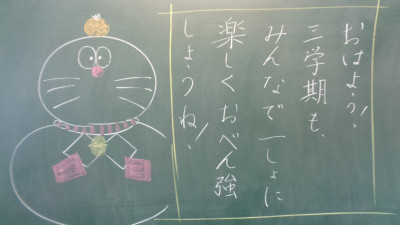 おはよう!
三学期も、
みんなで一しょに
楽しくおべん強
しようね!